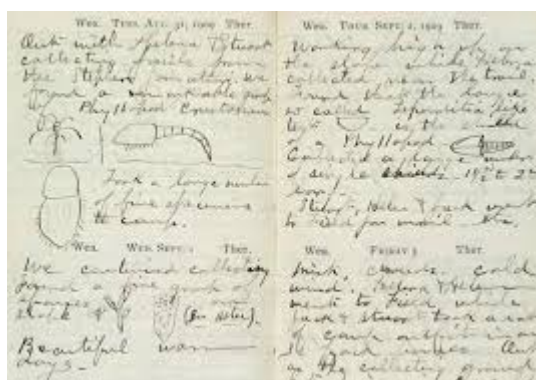 Wea. Tues. Aug. 31, 1909 Ther.
Out with Helena & Stuart
collecting fossils from
the Stephen formation. We
found a remarkable group
of Phyllopod Crustaceans
Took a large number
of fine specimens
to camp.
Wea. Wed. Sept. 1 Ther.
We continued collecting
found a fine group of
sponges
(in situ).
Beautiful warm
days
Wea. Thur. Sept. 2, 1909 Ther.
Working high up on
the slope while Helena
collected near the trail.
Found that the large
so called Leperditia like
test is the shield
of a Phyllopod
Collected a large number
of
Stuart, Helen & Jack went
to Field for mail etc.
Wea. Friday 3 Ther.
cold
wind. Helena & Helen
went to Field while
Jack & Stuart took a lot
of camp outfit
the collecting ground